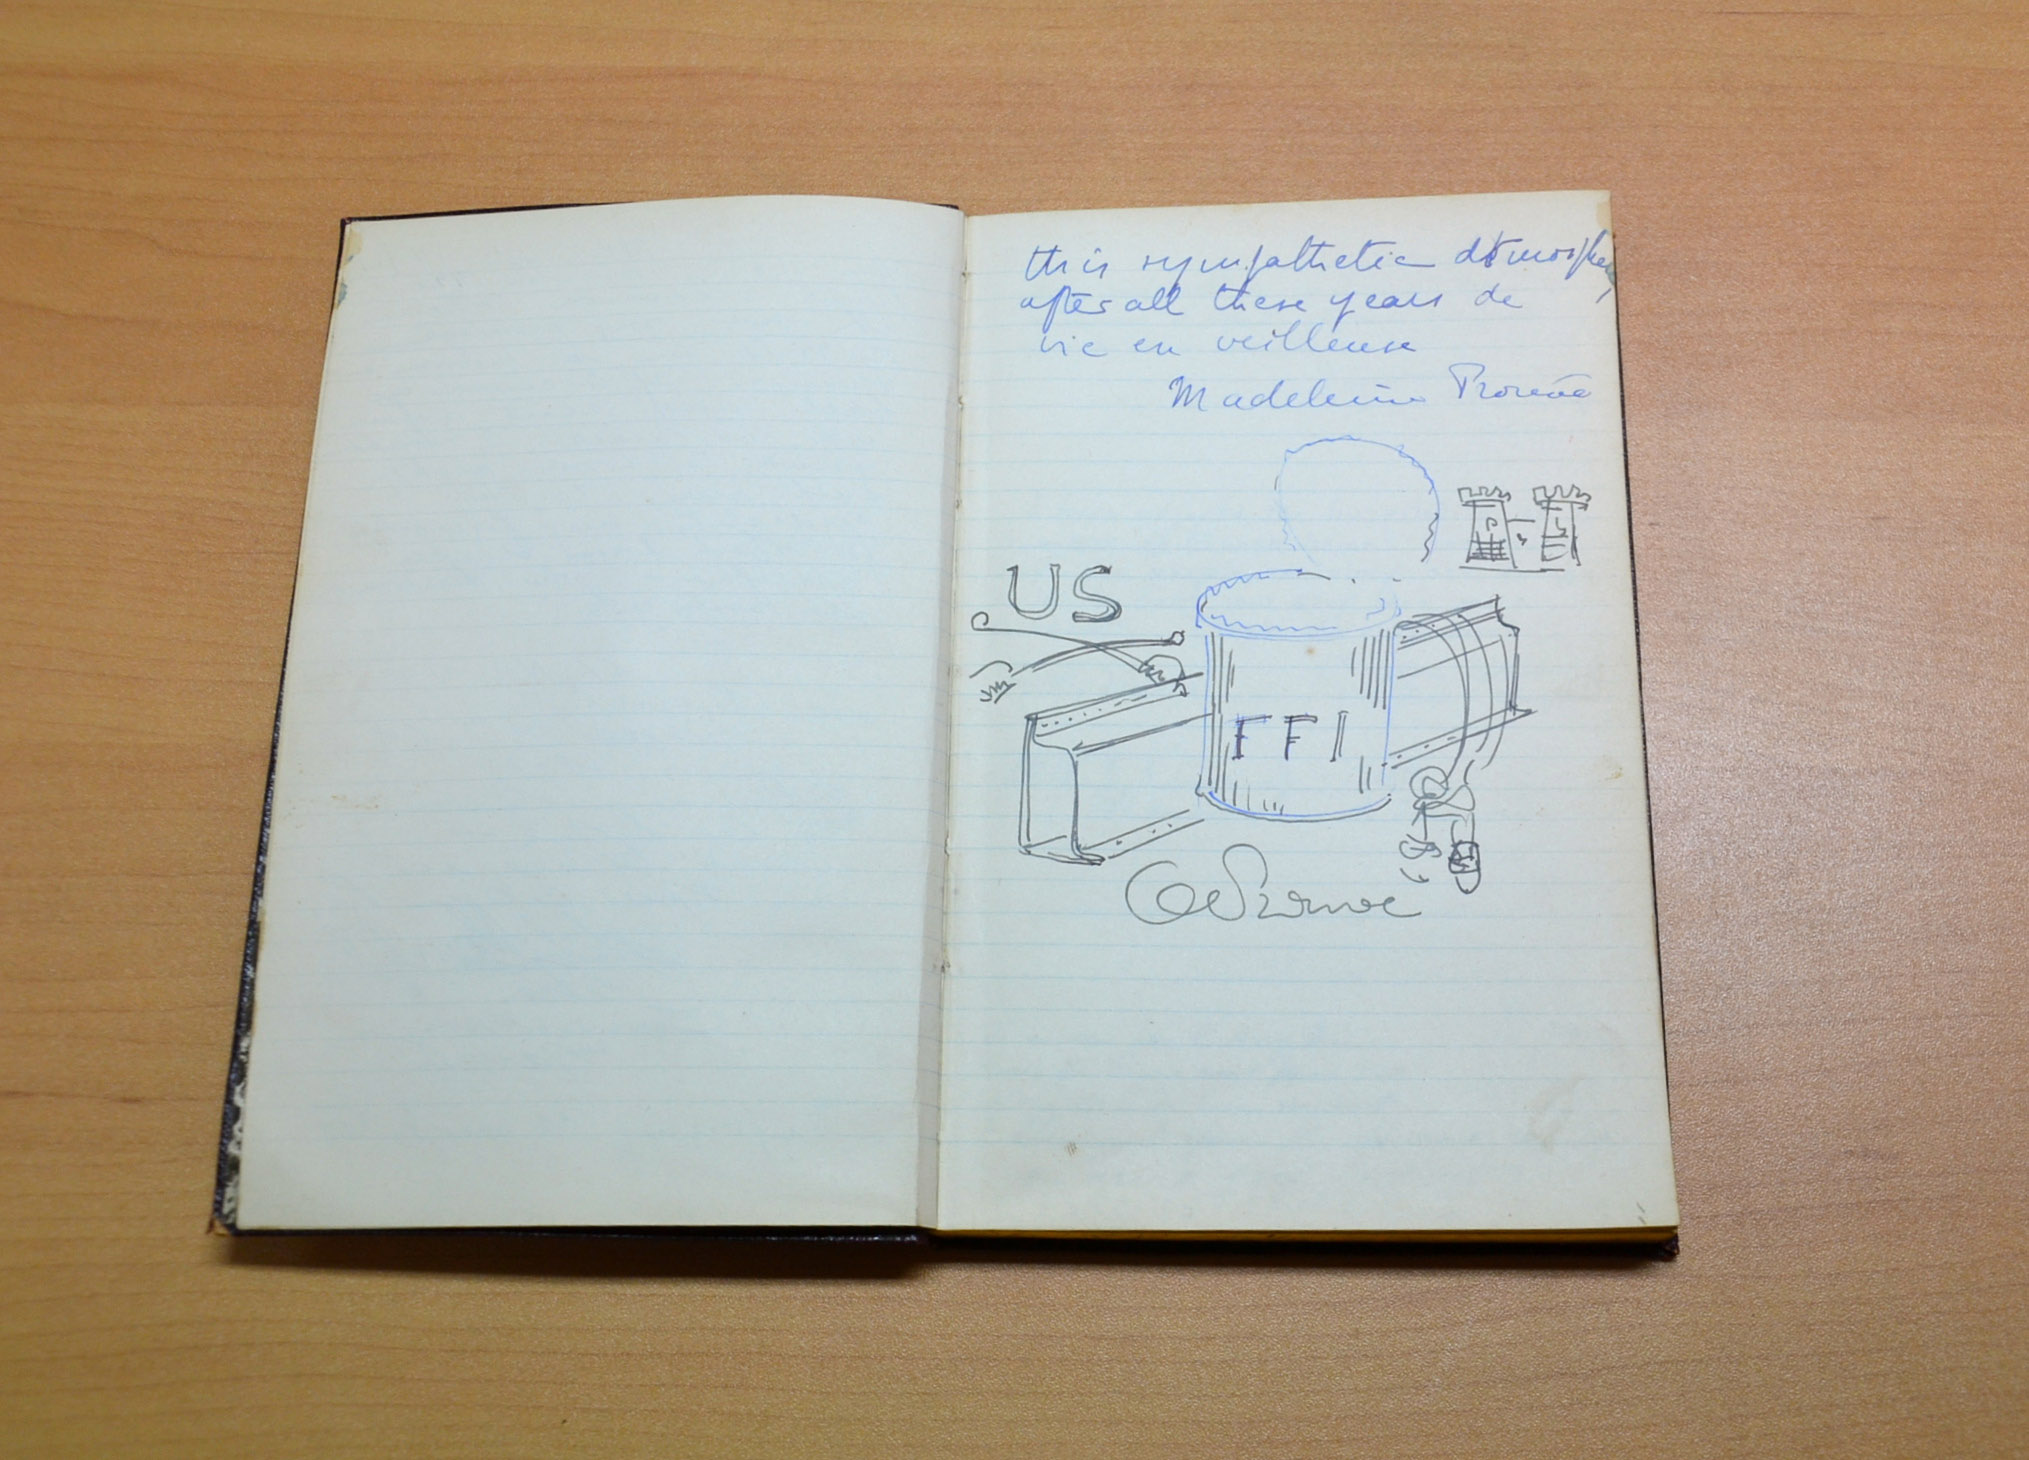 this sympathetic atmosphe
after all these years de
vie en veilleuse
Madeleine Prouvé
US
FFI
Prouvé